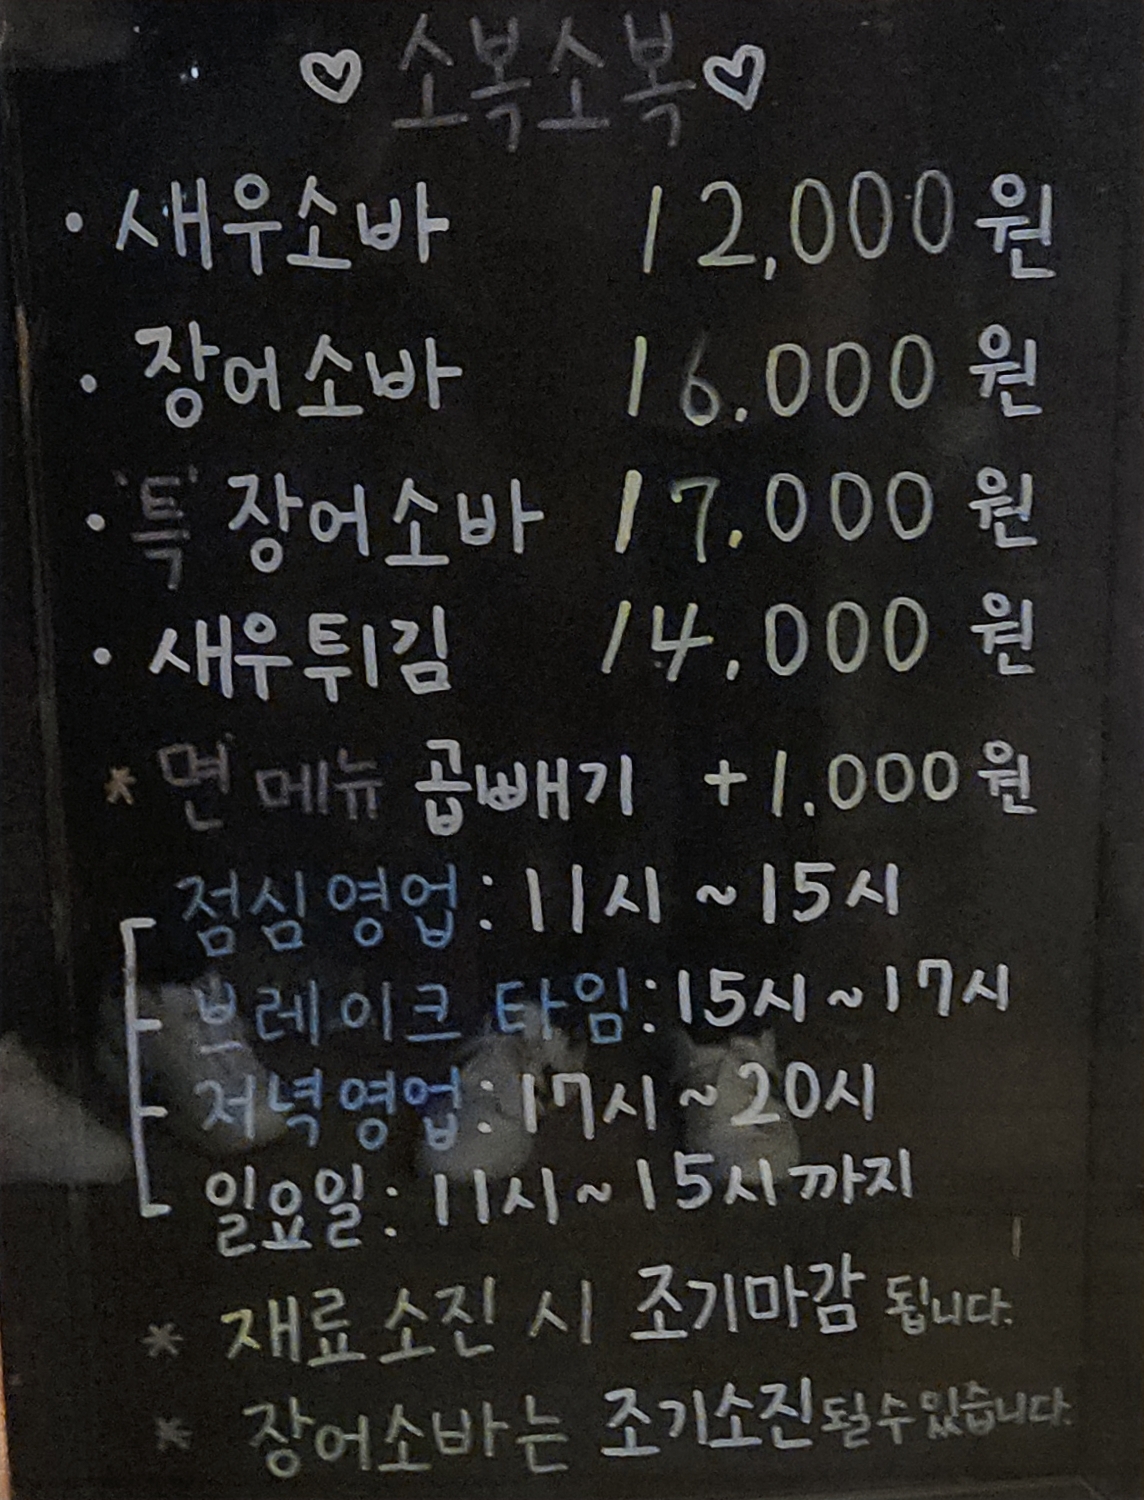 ♡ 소복소복 ♡
· 새우소바 12,000원
· 장어소바 16.000원
· '특' 장어소바 17.000원
· 새우튀김 14,000원
* 면 메뉴 곱빼기 +1.000원
점심영업: 11시~15시
브레이크 타임: 15시~17시
저녁영업: 17시~20시
일요일: 11시~15시까지
* 재료 소진 시 조기마감 됩니다.
* 장어소바는 조기소진 될 수 있습니다.